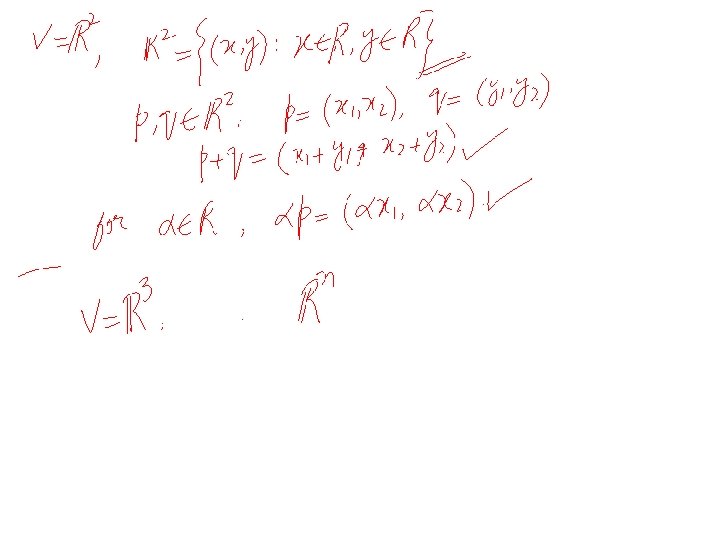 V=ℝ², ℝ²={(x,y): x∈ℝ, y∈ℝ}
p,q∈ℝ². p=(x₁,x₂), q=(y₁,y₂)
p+q=(x₁+y₁, x₂+y₂) ✓
for α∈ℝ, αp=(αx₁, αx₂). ✓
V=ℝ³. ℝⁿ